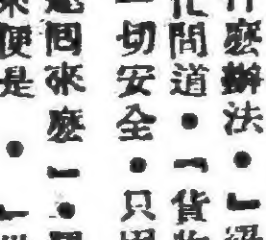 什麼辦法●」
忙問道●「貨
一切安全●只
回來麼」●
來便是●」